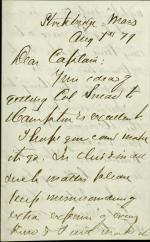 Stockbridge, Mass
Aug 7th 79
Dear Captain:
Your idea of
getting Col Snead to
Hampton is excellent.
I hope you can make
it go. In this & in all
such matters please
keep memorandum
extra expense of every
kind & I will make it